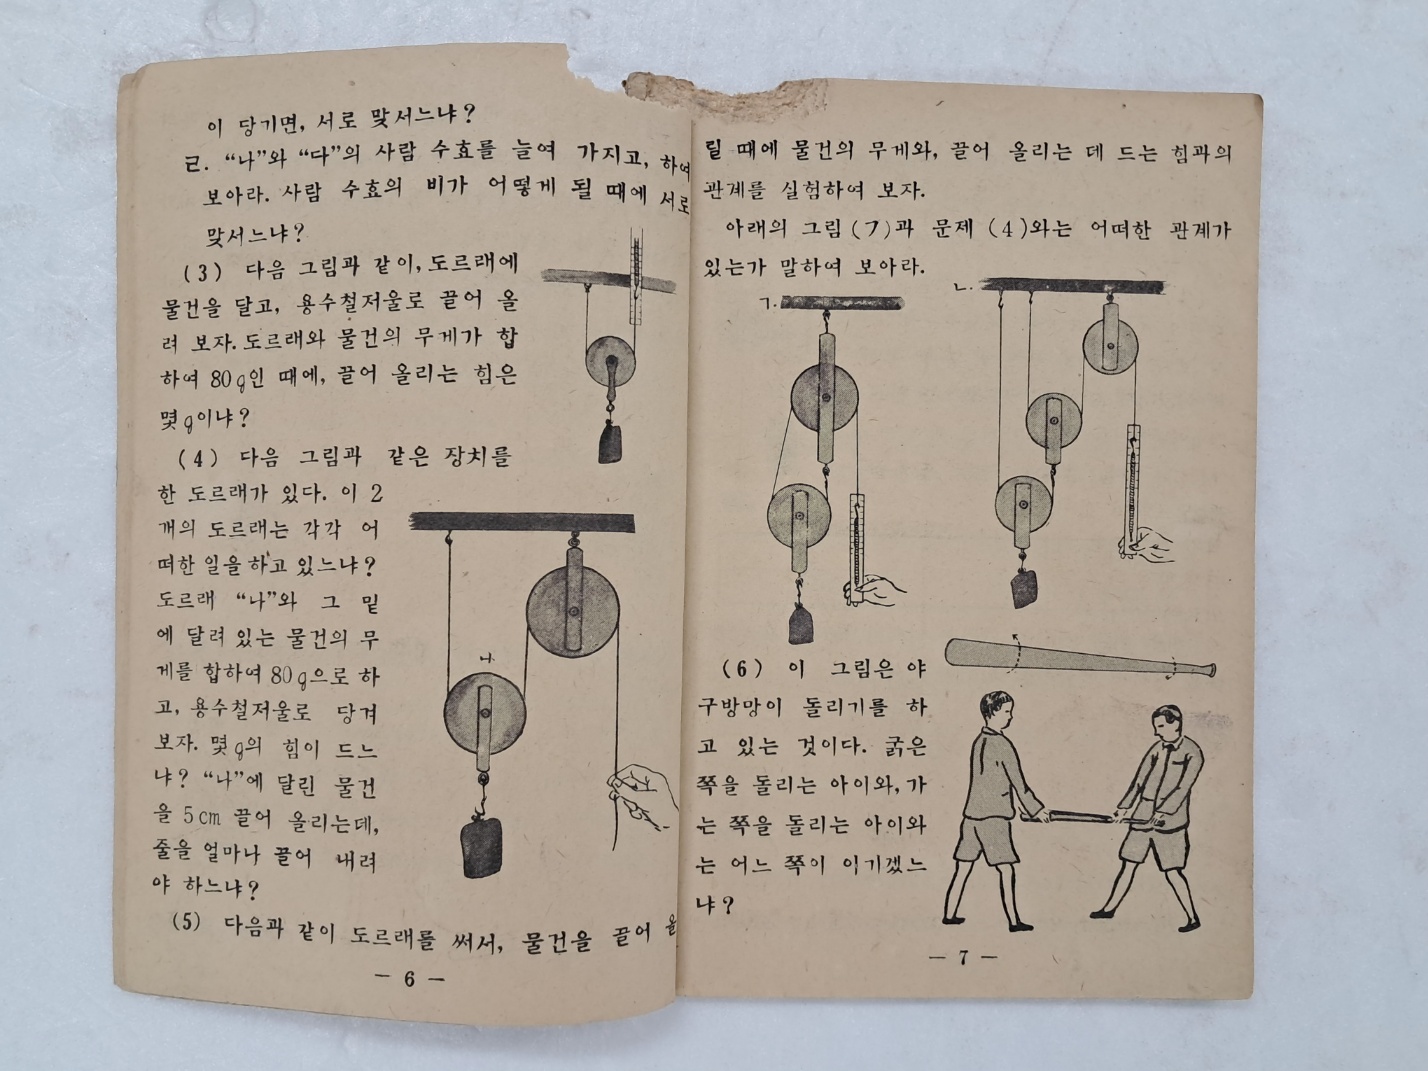 이 당기면, 서로 맞서느냐?
ㄹ. “나”와 “다”의 사람 수효를 늘여 가지고, 하여
보아라. 사람 수효의 비가 어떻게 될 때에 서로
맞서느냐?
(3) 다음 그림과 같이, 도르래에
물건을 달고, 용수철저울로 끌어 올
려 보자. 도르래와 물건의 무게가 합
하여 80g인 때에, 끌어 올리는 힘은
몇 g이냐?
(4) 다음 그림과 같은 장치를
한 도르래가 있다. 이 2
개의 도르래는 각각 어
떠한 일을 하고 있느냐?
도르래 “나”와 그 밑
에 달려 있는 물건의 무
게를 합하여 80g으로 하
고, 용수철저울로 당겨
보자. 몇 g의 힘이 드느
냐? “나”에 달린 물건
을 5cm 끌어 올리는데,
줄을 얼마나 끌어 내려
야 하느냐?
나
(5) 다음과 같이 도르래를 써서, 물건을 끌어 올
— 6 —
릴 때에 물건의 무게와, 끌어 올리는 데 드는 힘과의
관계를 실험하여 보자.
아래의 그림 (7)과 문제 (4)와는 어떠한 관계가
있는가 말하여 보아라.
ㄱ.
ㄴ.
(6) 이 그림은 야
구방망이 돌리기를 하
고 있는 것이다. 굵은
쪽을 돌리는 아이와, 가
는 쪽을 돌리는 아이와
는 어느 쪽이 이기겠느
냐?
— 7 —